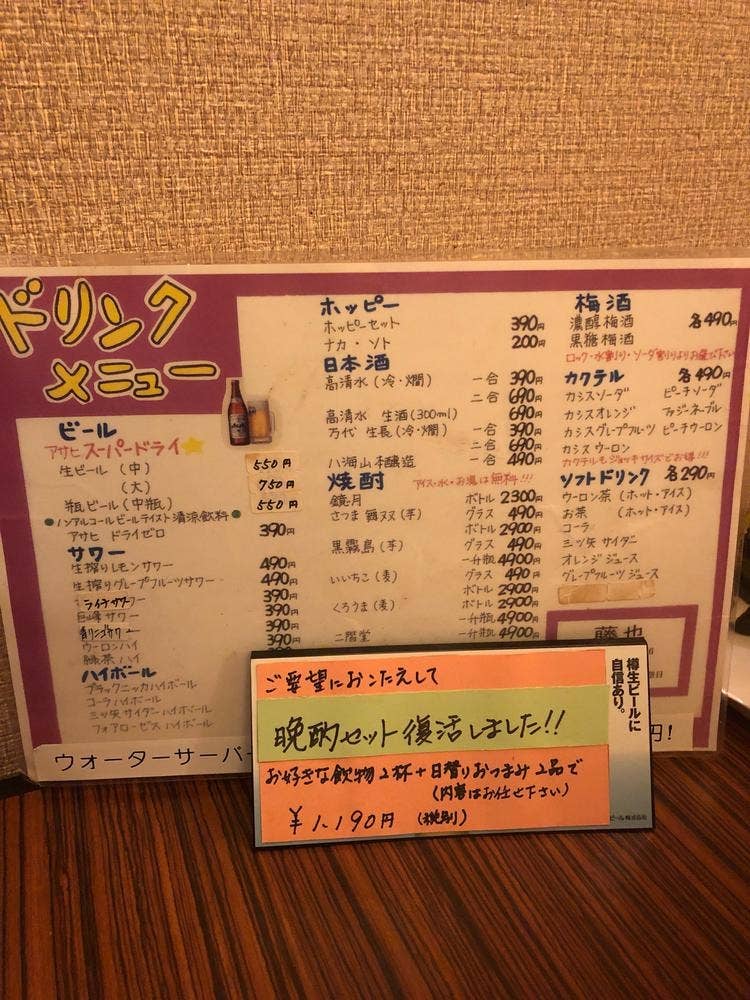 ドリンク
メニュー
ビール
アサヒ スーパードライ
生ビール (中) 550円
(大) 750円
瓶ビール (中瓶) 550円
ノンアルコールビールテイスト清涼飲料
アサヒ ドライゼロ 390円
サワー
生搾りレモンサワー 490円
生搾りグレープフルーツサワー 490円
ライチサワー 390円
巨峰サワー 390円
青リンゴサワー 390円
ウーロンハイ 390円
緑茶ハイ
ハイボール
ブラックニッカハイボール
コーラハイボール
三ツ矢サイダーハイボール
フォアローゼスハイボール
ウォーターサーバー
ホッピー
ホッピーセット 390円
ナカ・ソト 200円
日本酒
高清水 (冷・燗) 一合 390円
二合 690円
高清水 生酒 (300ml) 690円
万代 生長 (冷・燗) 一合 390円
二合 690円
八海山 本醸造 一合 490円
焼酎 アイス・水・お湯は無料!!
鏡月 ボトル 2300円
さつま (芋) グラス 490円
ボトル 2900円
黒霧島 (芋) グラス 490円
一升瓶 4900円
いいちこ (麦) グラス 490円
ボトル 2900円
くろうま (麦) ボトル 2900円
一升瓶 4900円
二階堂 一升瓶 4900円
梅酒 各490円
濃醇梅酒
黒糖梅酒
ロック・水割り・ソーダ割りよりお選び下さい
カクテル 各490円
カシスソーダ ピーチソーダ
カシスオレンジ ファジーネーブル
カシスグレープフルーツ ピーチウーロン
カシスウーロン
カクテルもジョッキサイズでお得!!
ソフトドリンク 各290円
ウーロン茶 (ホット・アイス)
お茶 (ホット・アイス)
コーラ
三ツ矢サイダー
オレンジジュース
グレープフルーツジュース
藤也
円!
ご要望におこたえして
晩酌セット復活しました!!
お好きな飲物2杯+日替りおつまみ2品で
(内容はお任せ下さい)
¥1,190円 (税別)
樽生ビールに
自信あり。
ビール株式会社